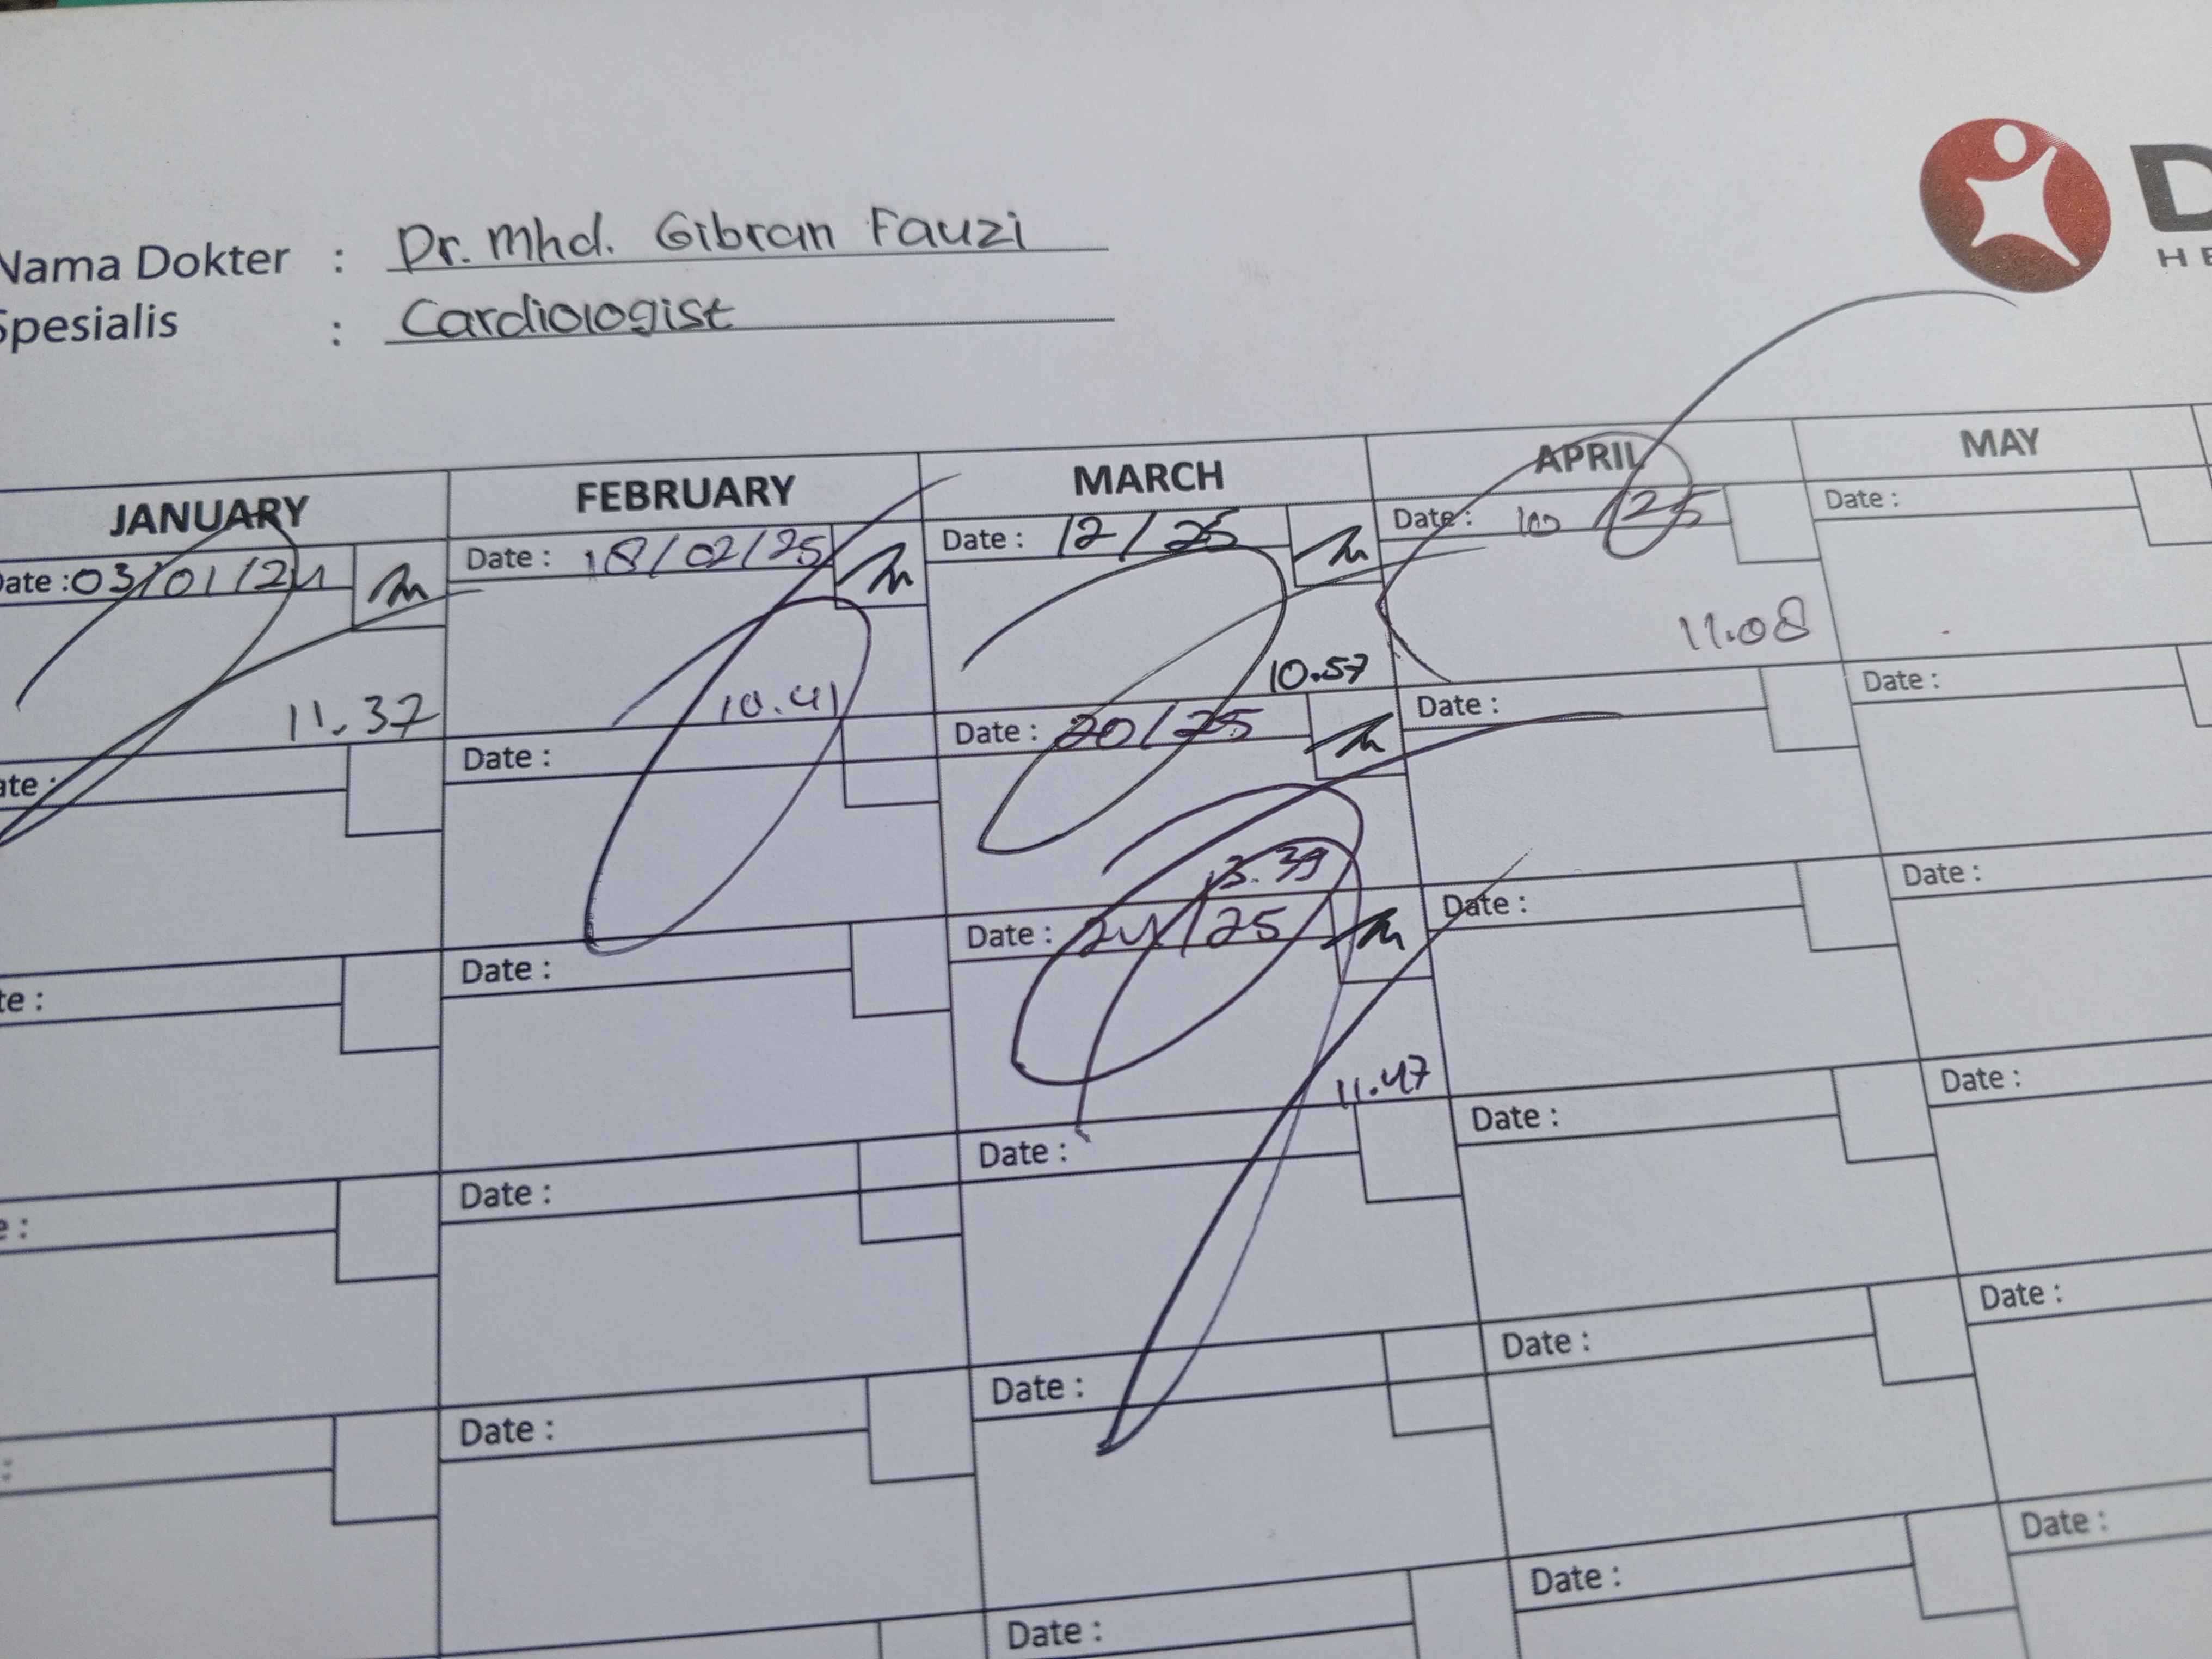 Nama Dokter : Dr. Mhd. Gibran Fauzi
Spesialis : Cardiologist
D
HE
JANUARY FEBRUARY MARCH APRIL MAY
Date : 18/02/25 Date : 12/25 Date : 10/25 Date :
ate :03/01/
11.37 10.41 10.57 11.08
ate : Date : Date : 20/25 Date : Date :
13.39
te : Date : Date : 24/25 Date : Date :
11.47
e : Date : Date : Date : Date :
: Date : Date : Date : Date :
Date : Date : Date :